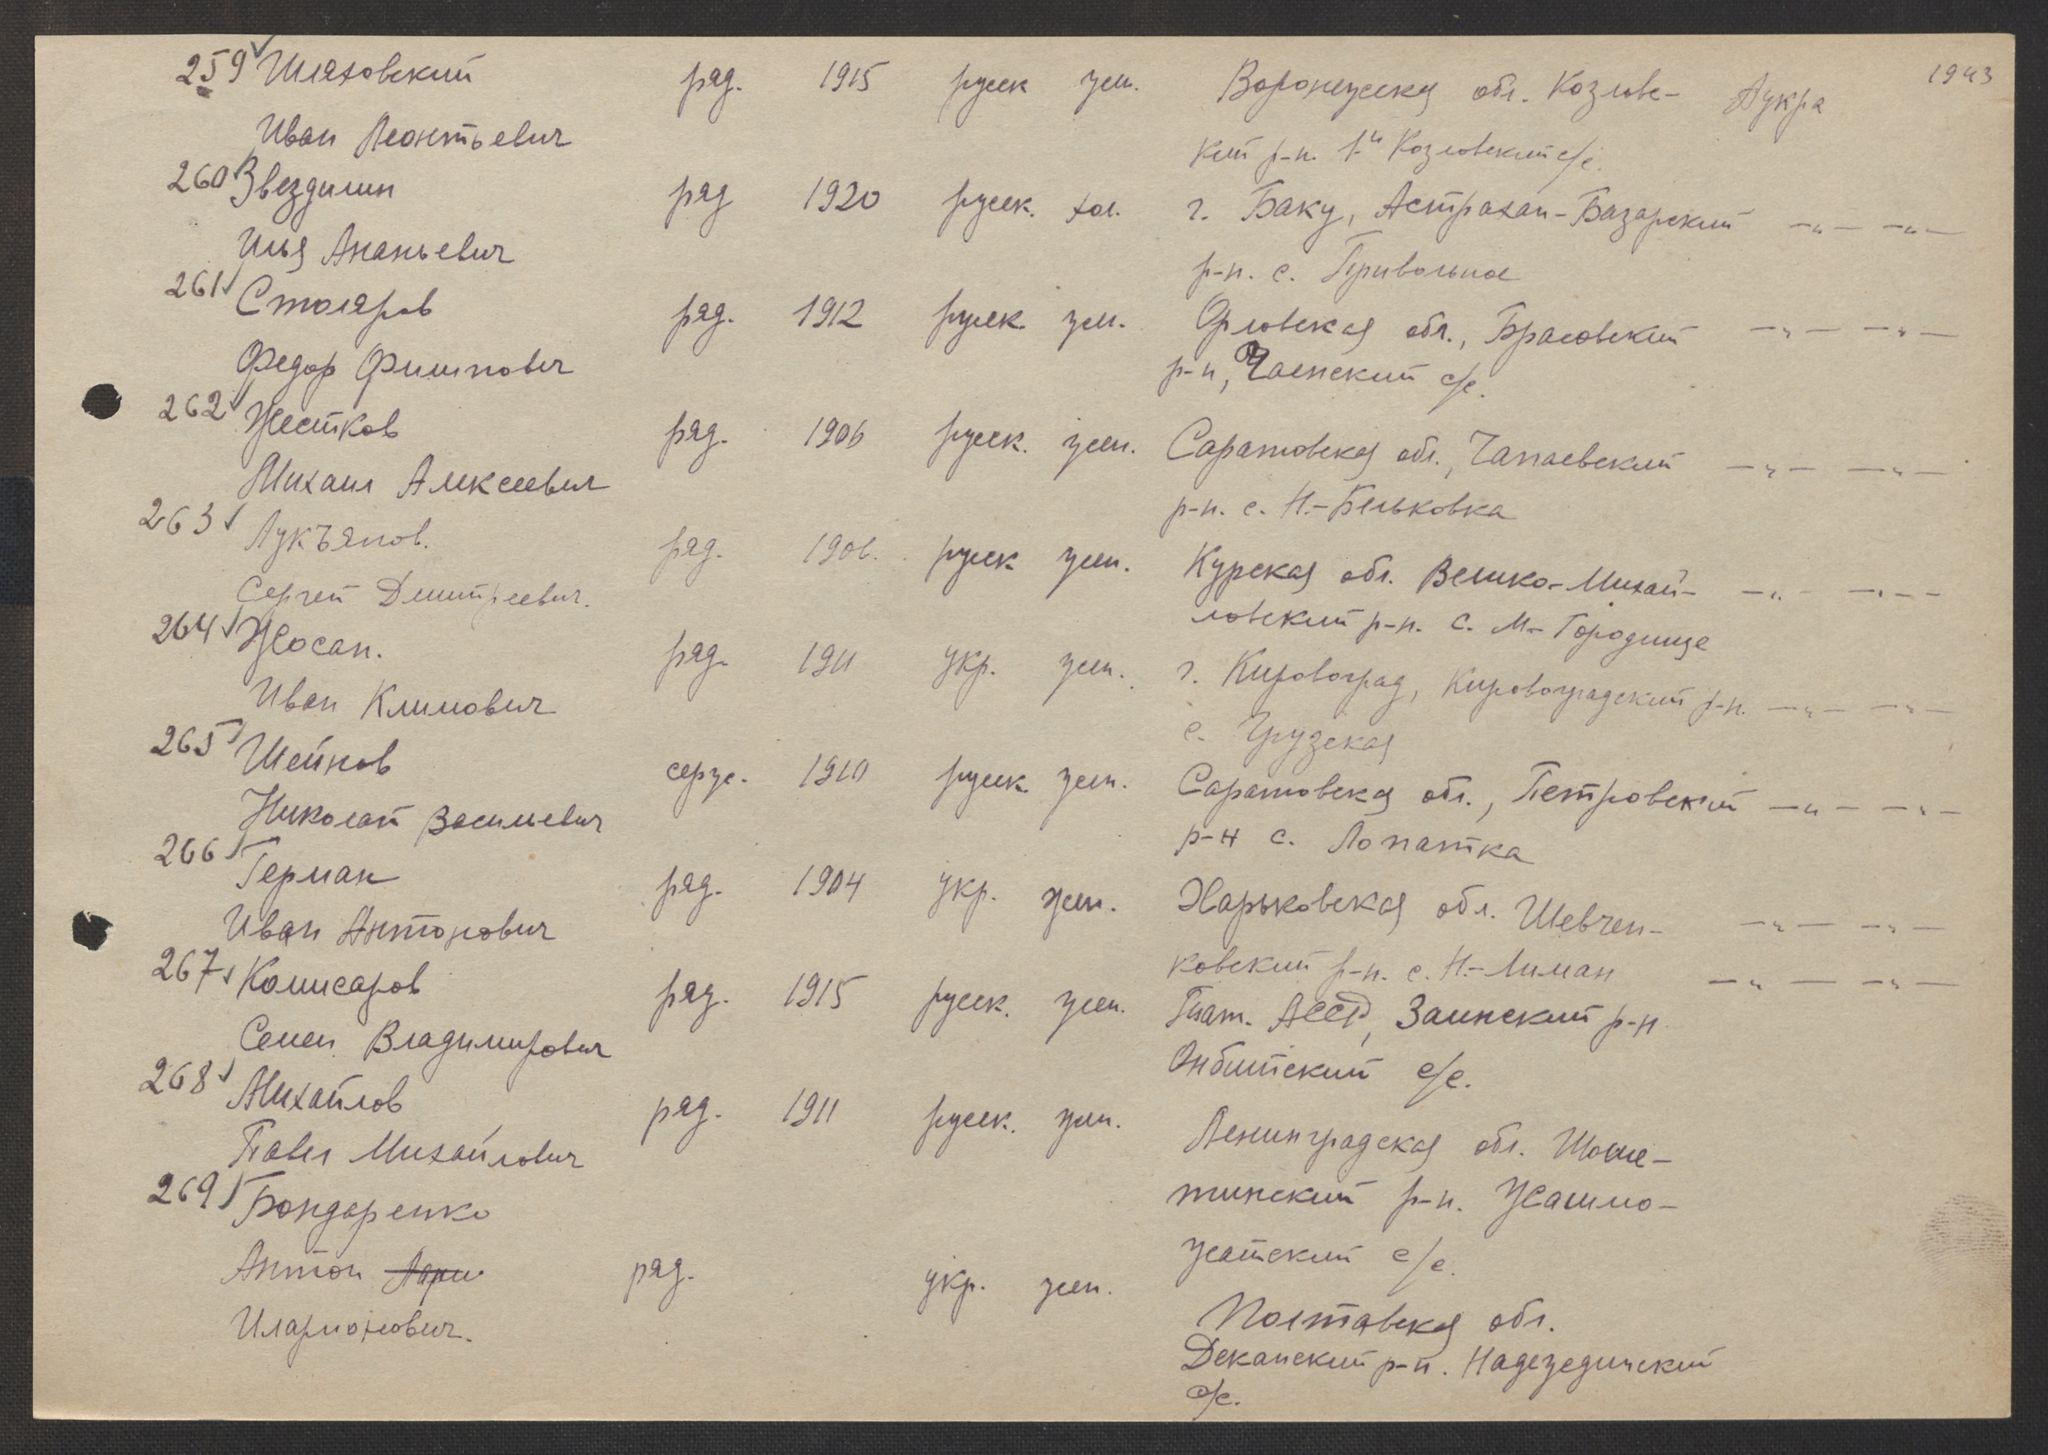 259 Шляховский ряд. 1915 русск жен. Воронежская обл. Козловс- Лукра 1943
Иван Леонтьевич кий р-н. 1-й Козловский с/с.
260 Звездилин ряд 1920 русск. хол. г. Баку, Астрахан-Базарский —"— —"—
Илья Ананьевич р-н. с. Привольное
261 Столяров ряд. 1912 русск. жен. Орловская обл., Брасовский —"— —"—
Федор Филиппович р-н, Чаенский с/с.
262 Жестков ряд. 1906 русск. жен. Саратовская обл., Чапаевский —"— —"—
Михаил Алексеевич р-н. с. Н.-Бельковка
263 Лукъянов. ряд. 1906. русск жен. Курская обл. Велико-Михай- —"— —"—
Сергей Дмитреевич. ловский р-н. с. М.-Городище
264 Жосан. ряд. 1911 укр. жен. г. Кировоград, Кировоградский р-н. —"— —"—
Иван Климович с. Грузская
265 Шейнов серж. 1910 русск жен. Саратовская обл., Петровский —"— —"—
Николай Васильевич р-н с. Лопатка
266 Герман ряд. 1904 укр. жен. Харьковская обл. Шевчен- —"— —"—
Иван Антонович ковский р-н. с. Н.-Лиман —"— —"—
267 Комисаров ряд. 1915 русск. жен. Тат. АССР, Заинский р-н
Семен Владимирович Онбийский с/с.
268 Михайлов ряд. 1911 русск. жен. Ленинградская обл.
Павел Михайлович тинский р-н.
269 Бондаренко с/с.
Антон Лари ряд. укр. жен. Полтавская обл.
Иларионович. Деканский р-н. Надеждинский
с/с.